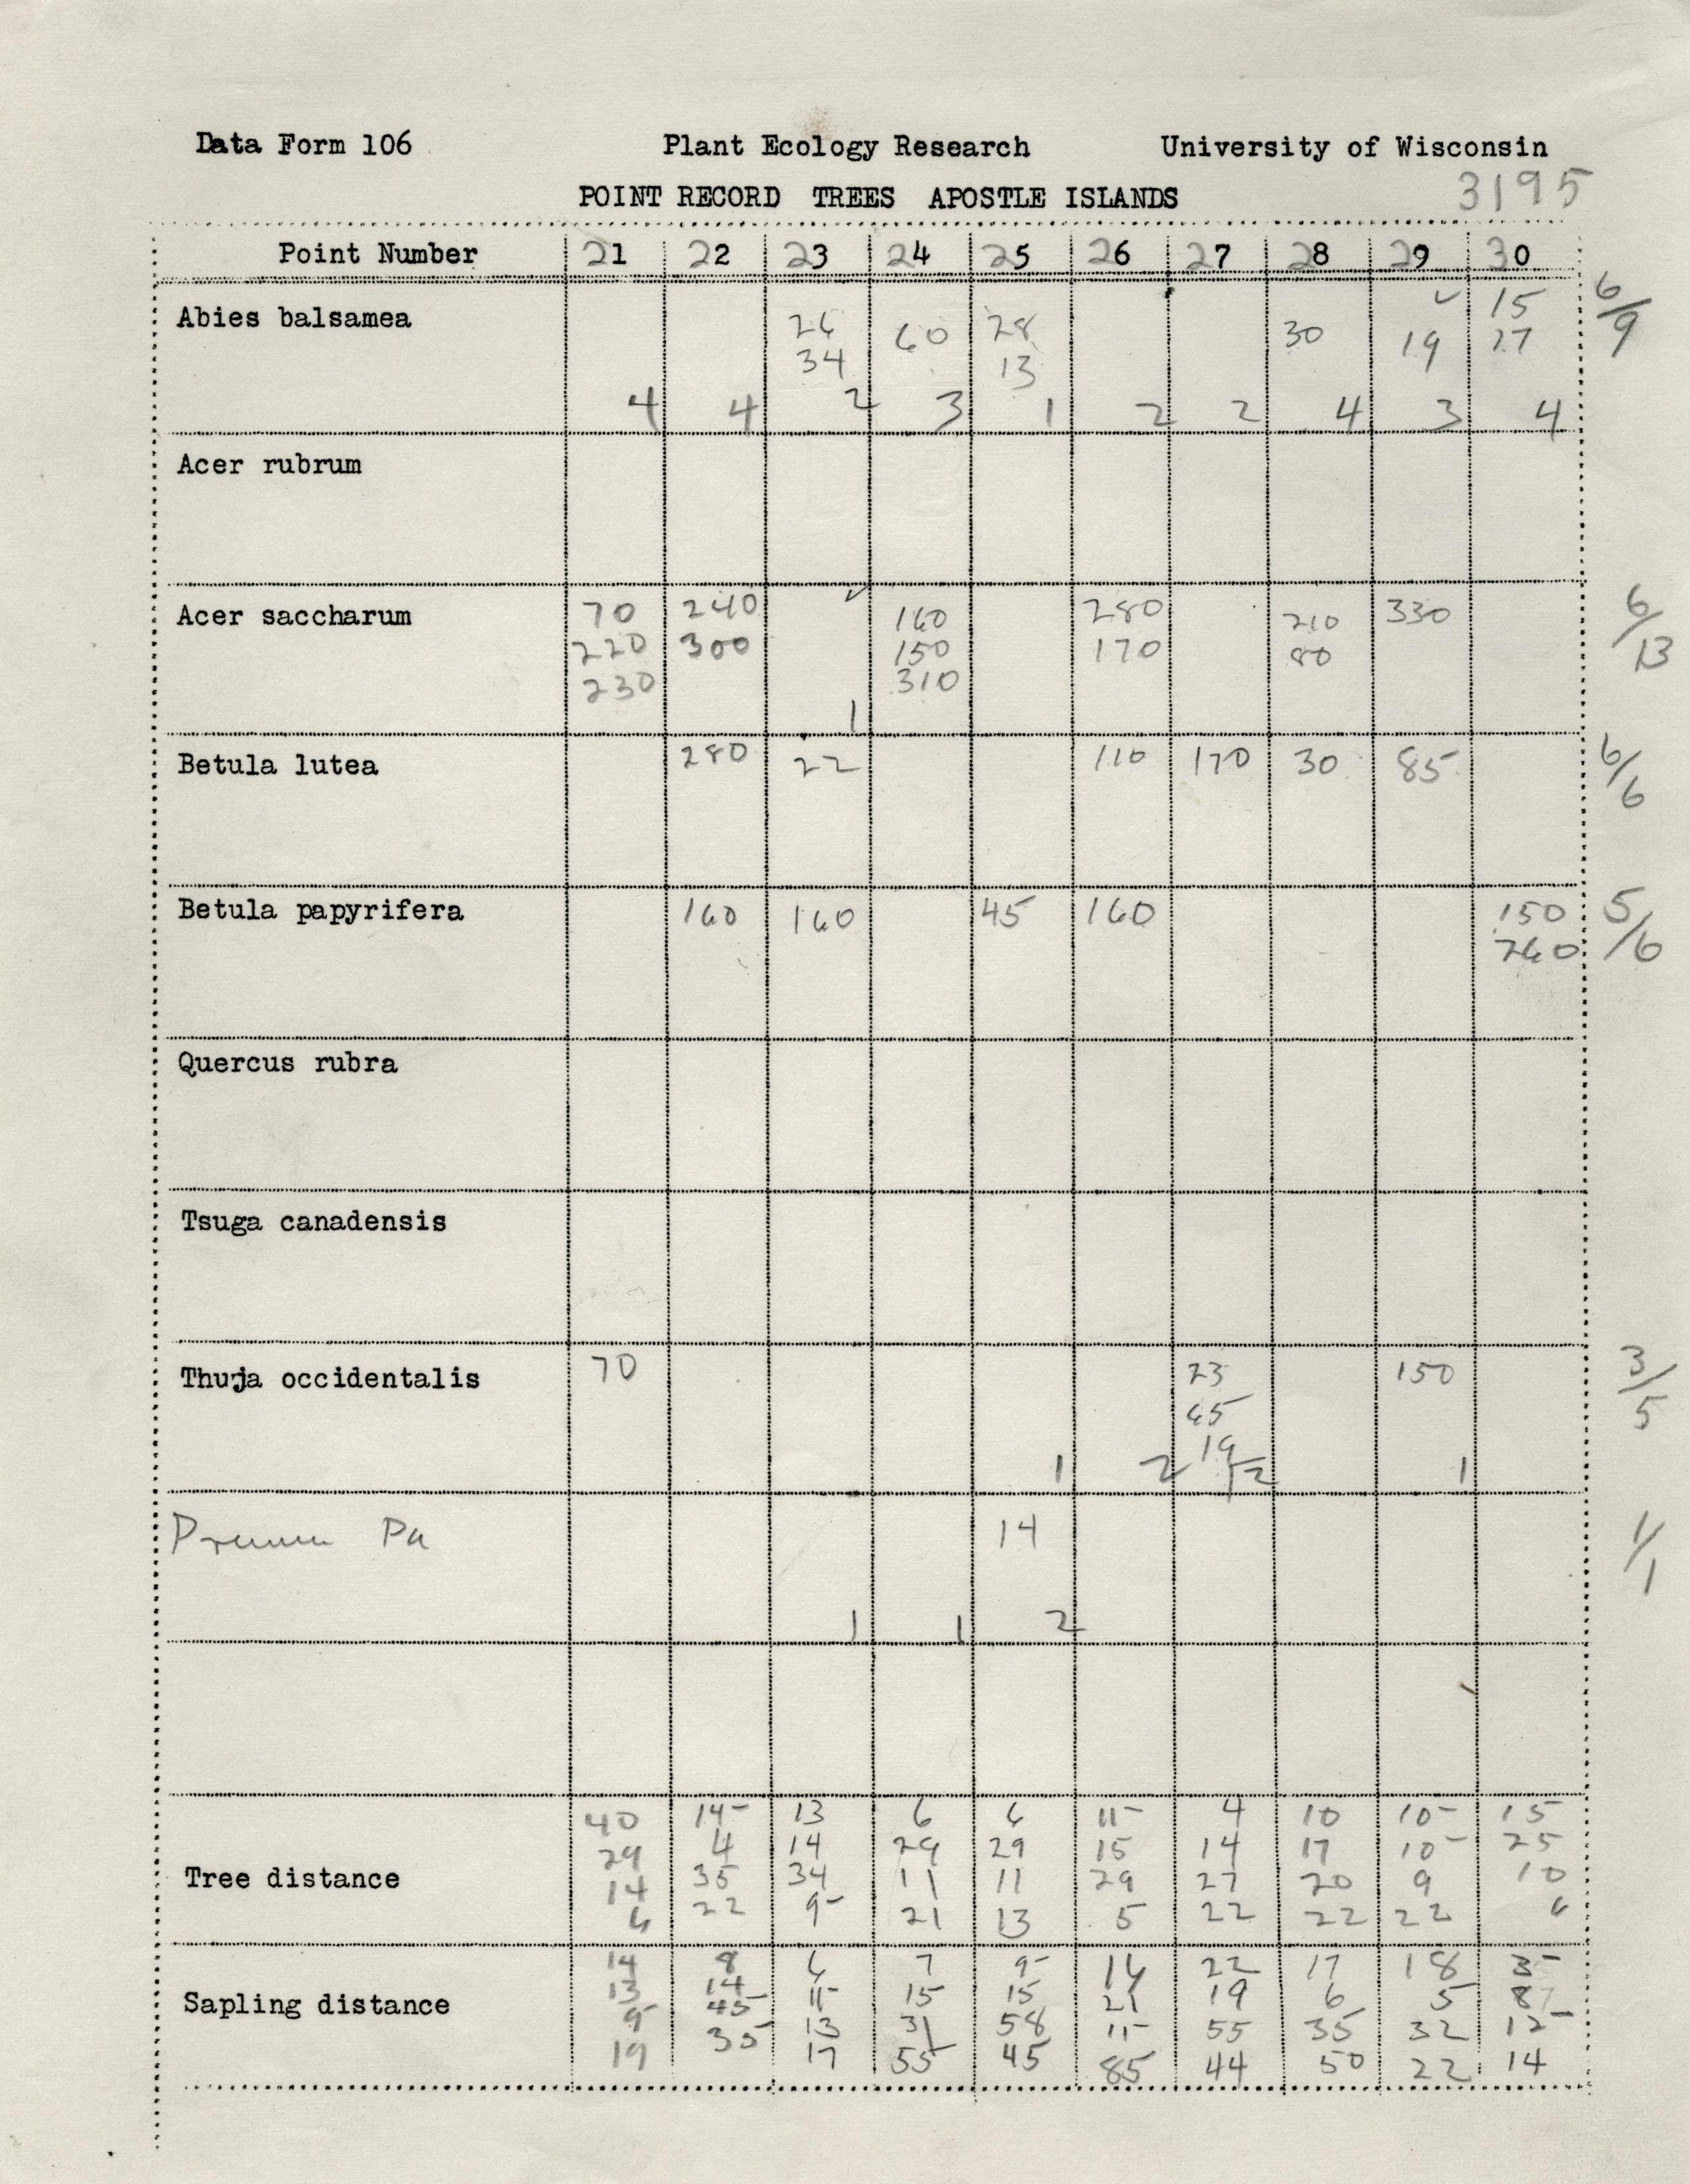 Data Form 106 Plant Ecology Research University of Wisconsin
POINT RECORD TREES APOSTLE ISLANDS 3195
Point Number 21 22 23 24 25 26 27 28 29 30
✓ 15 6/9
Abies balsamea 26 60 28 30 19 27
34 13
4 4 2 3 1 2 2 4 3 4
Acer rubrum
✓
Acer saccharum 70 240 160 280 210 330 6/13
220 300 150 170 80
230 310
1
Betula lutea 280 22 110 170 30 85 6/6
Betula papyrifera 160 160 45 160 150 5/6
260
Quercus rubra
Tsuga canadensis
Thuja occidentalis 70 23 150 3/5
65
19
1 2 2 1
14 1/1
1 1 2
40 14- 13 6 6 11- 4 10 10- 15
29 4 14 29 29 15 14 17 10- 25
Tree distance 14 35 34 11 11 29 27 20 9 10
6 22 9- 21 13 5 22 22 22 6
14 8 6 7 9- 16 22 17 18 3-
13 14 11- 15 15 21 19 6 5 8
Sapling distance 9 45 13 31 58 11- 55 35 32 12-
19 35 17 55 45 85 44 50 22 14